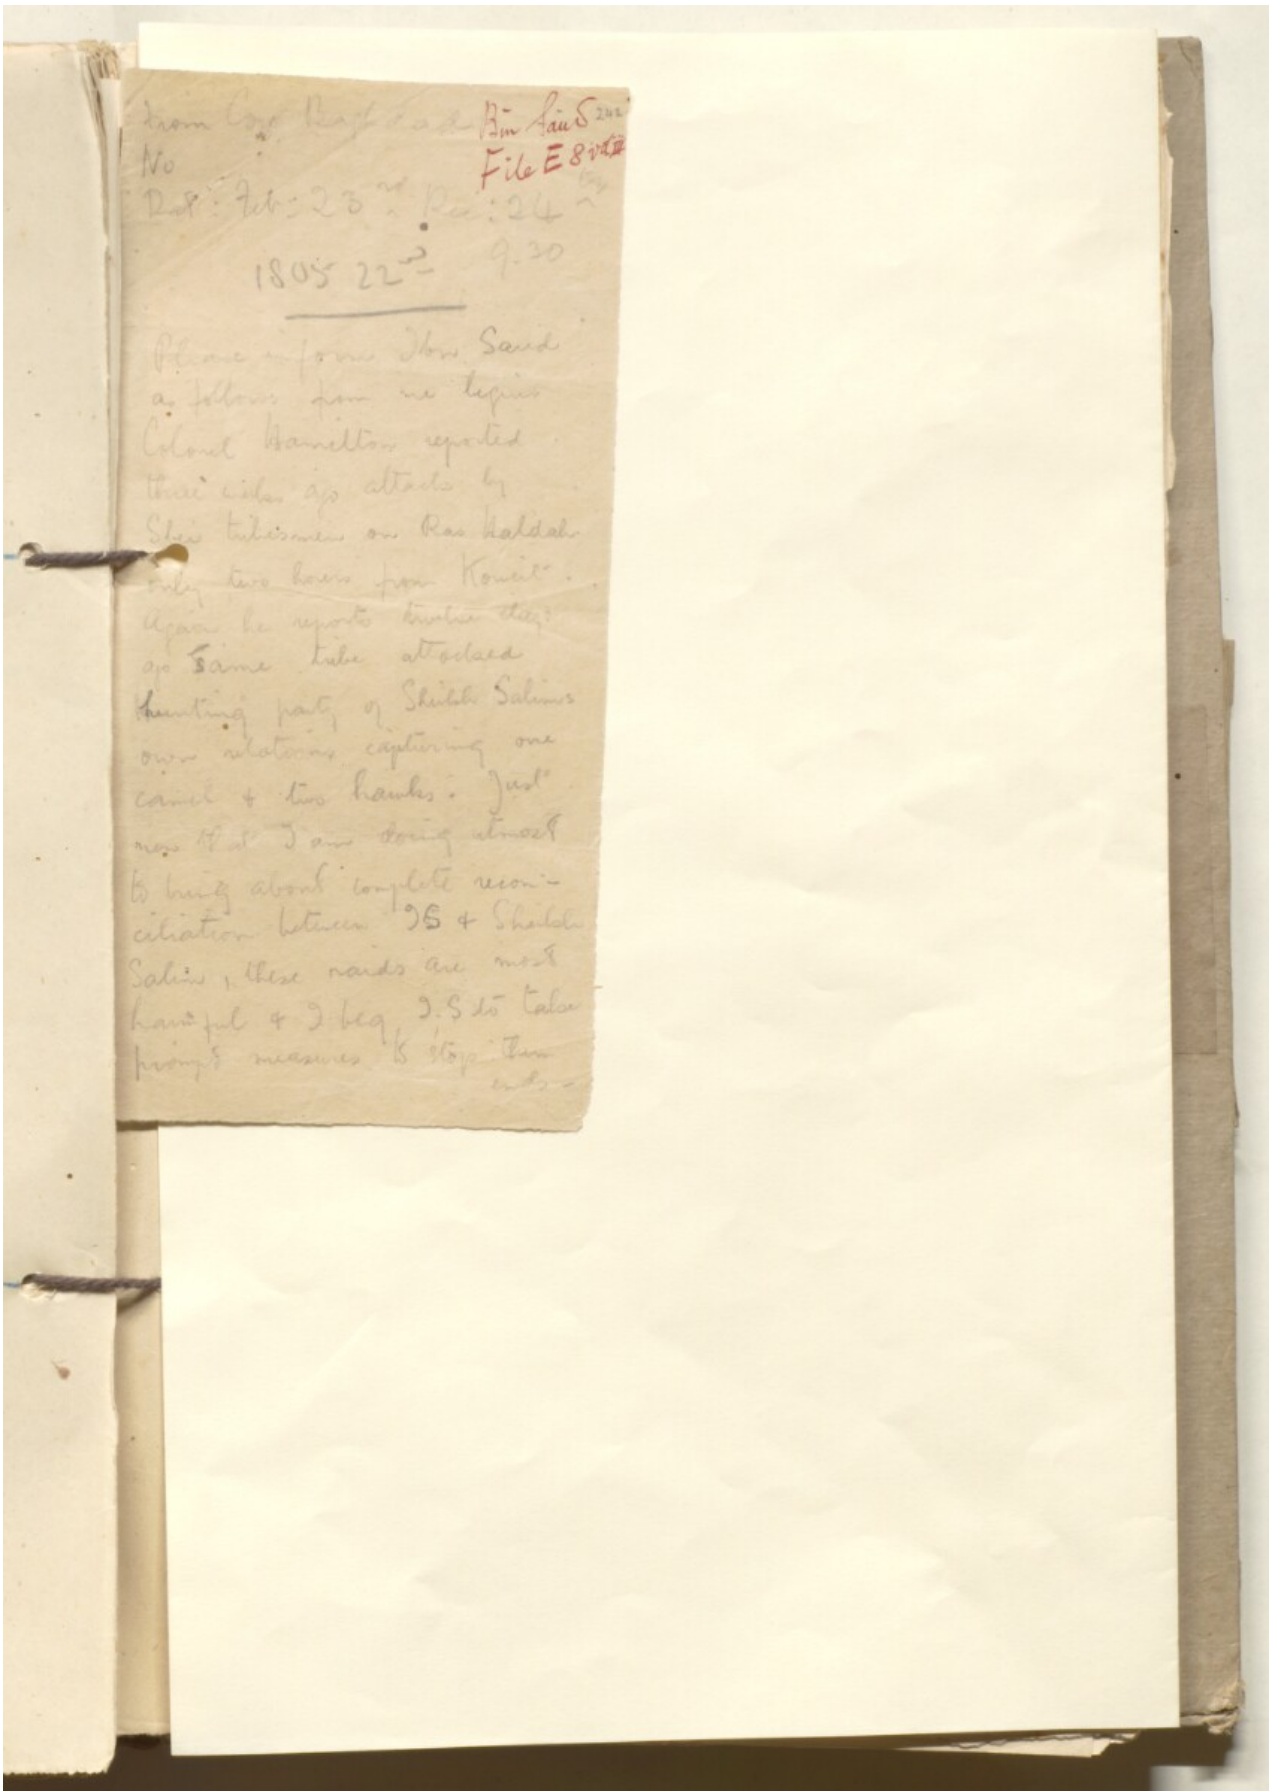 From Cox Baghdad
Bin Saud 242
No
File E 8 vol III
Dat: Feb: 23rd. Rec: 24
9.30
1805 22nd
Please inform Ibn Saud
as follows from me begins
Colonel Hamilton reported
three weeks ago attacks by
tribesmen on Ras
only two hours from Koweit.
Again he reports twelve days
ago same tribe attacked
hunting party of Sheikh Salims
own relations capturing one
camel & two hawks. Just
now that I am doing utmost
to bring about complete recon-
ciliation between IS & Sheikh
Salim, these raids are most
harmful & I beg I.S to take
prompt measures to stop them
ends -